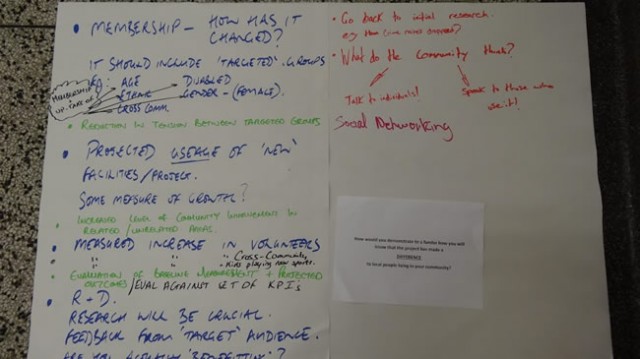 • MEMBERSHIP — HOW HAS IT
CHANGED?
IT SHOULD INCLUDE 'TARGETED' GROUPS
EG: AGE • DISABLED
ETHNIC • GENDER - (FEMALE).
CROSS COMM.
MEMBERSHIP
• REDUCTION IN TENSION BETWEEN TARGETED GROUPS
• PROJECTED USEAGE OF 'NEW'
FACILITIES/PROJECT.
SOME MEASURE OF GROWTH?
• INCREASED LEVEL OF COMMUNITY INVOLVEMENT IN
RELATED/UNRELATED AREAS
• MEASURED INCREASE IN VOLUNTEERS
" " " Cross-Community
" " - Kids playing new sports.
• EVALUATION OF BASELINE MEASUREMENT + PROJECTED
OUTCOMES/EVAL AGAINST SET OF KPIs
• R + D.
RESEARCH WILL BE CRUCIAL.
FEEDBACK FROM 'TARGET' AUDIENCE.
ARE YOU ACTUALLY 'BENEFITTING'?
• Go back to initial research.
e.g. Has crime rates dropped?
• What do the Community think?
Talk to individuals!
Speak to those who
use it!
Social Networking
How would you demonstrate to a funder how you will
know that the project has made a
DIFFERENCE
to local people living in your community?